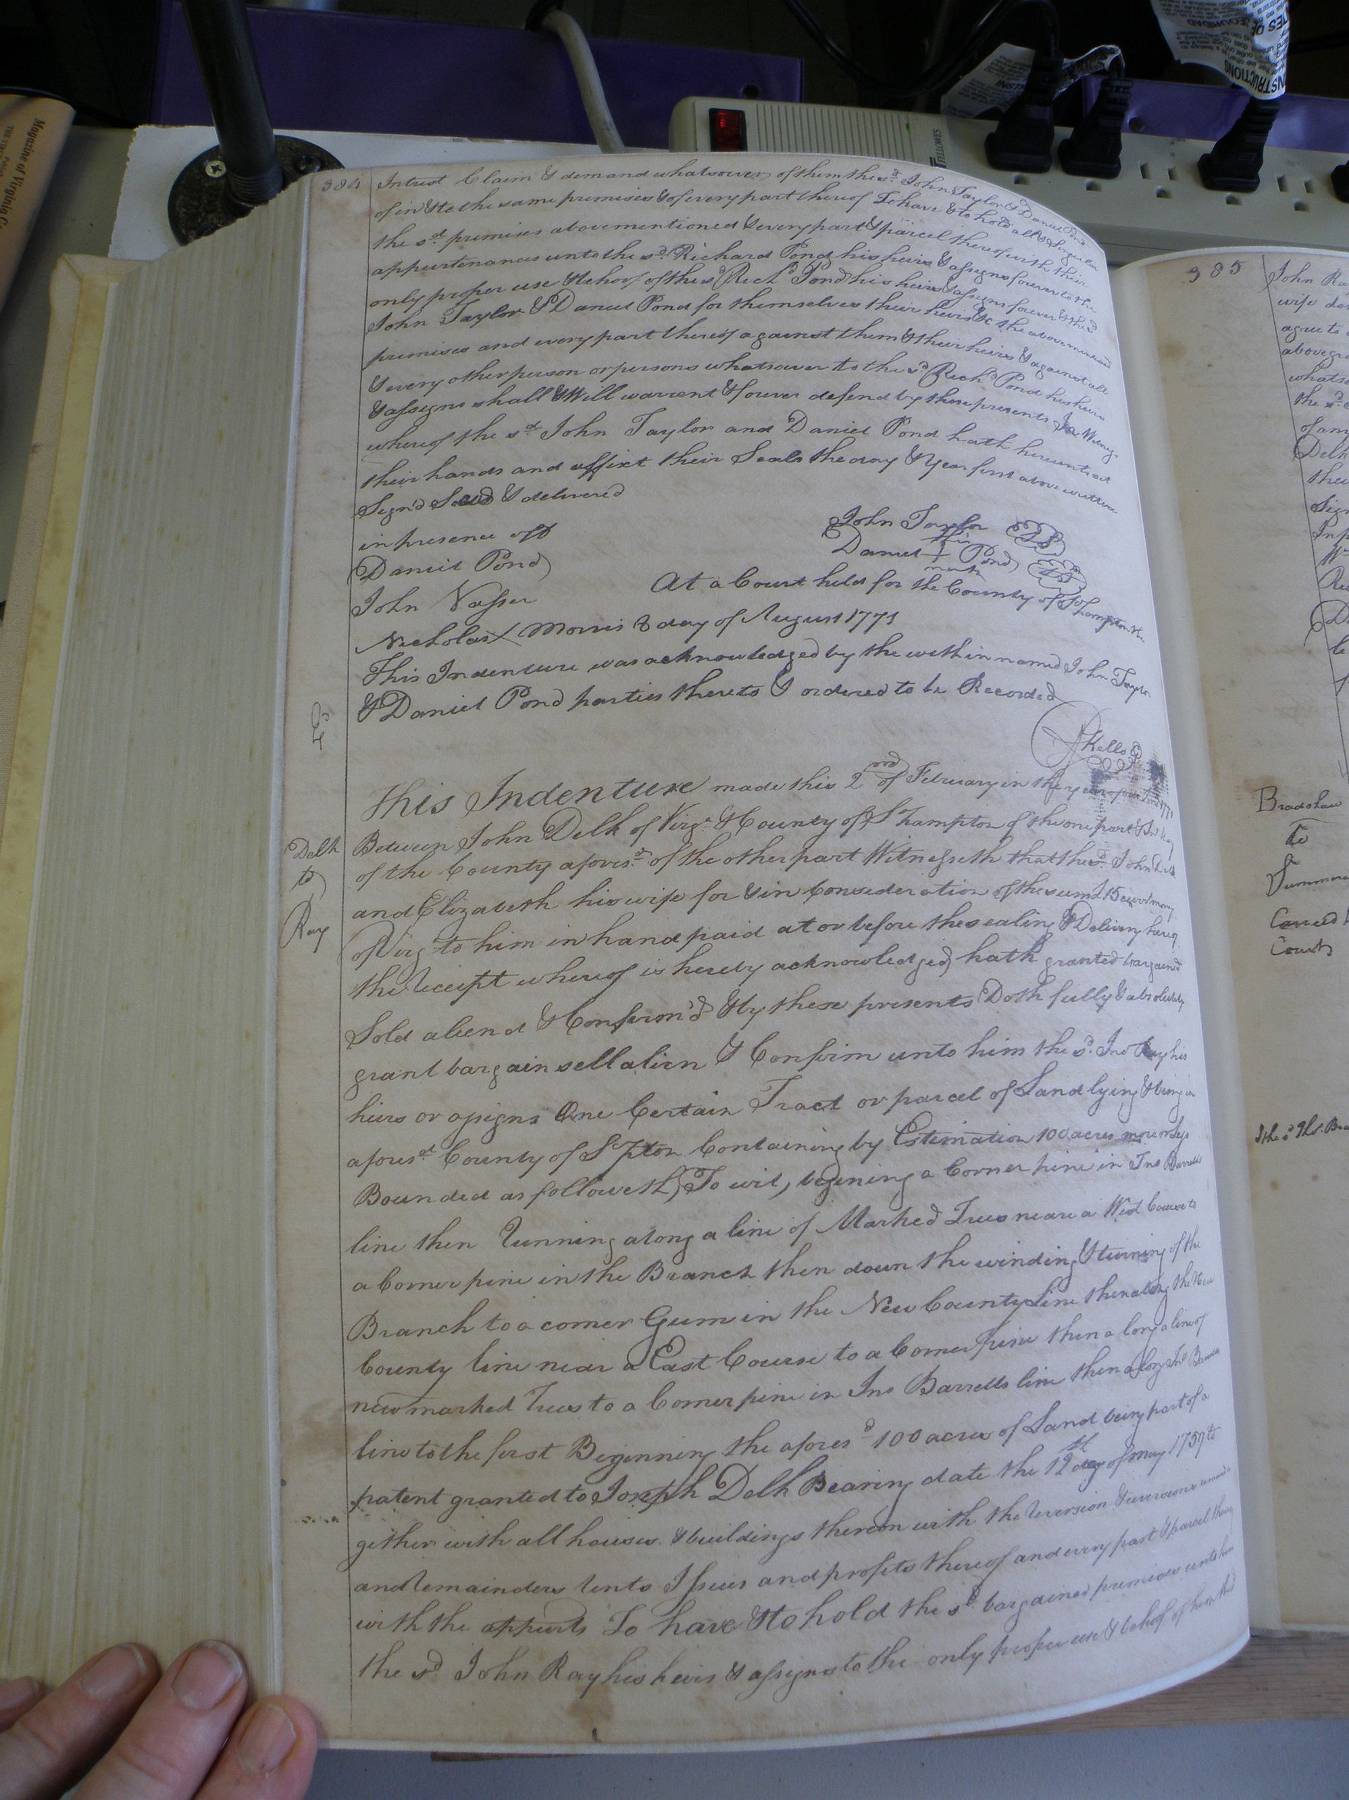 384
Intrest Claim & demand whatsoever of them the sd. John Taylor & Daniel Pond
of in & to the same premises & of every part thereof To have & to hold all & Singular
the sd. premises abovementioned & every part & parcel thereof with their
appurtenances unto the sd. Richard Pond his heirs & assigns forever to the
only proper use & behoof of the sd. Richd. Pond his heirs & assigns forever & the sd.
John Taylor & Daniel Pond for themselves their heirs &c the abovementioned
premises and every part thereof against them & their heirs & against all
& every other person or persons whatsoever to the sd. Richd. Pond his heirs
& assigns shall & Will warrent & forever defend by these presents In Witness
whereof the sd. John Taylor and Daniel Pond hath hereunto set
their hands and affixt their Seals the day & Year first above written
Sign'd Seald & delivered
in presence off
John Taylor LS
Daniel Pond
Daniel his Pond LS
mark
John Vasser
At a Court held for the County of Sohampton the
Nicholas X Morris 8 day of August 1771
This Indenture was acknowledged by the within named John Taylor
& Daniel Pond parties thereto & ordered to be Recorded
Kello
This Indenture made this 2nd of February in the year of our Lord
Delk
to
Ray
Between John Delk of Virga. & County of So.hampton of the one part & Jno. Ray
of the County aforesd. of the other part Witnesseth that the sd. John Delk
and Elizabeth his wife for & in Consideration of the sum £15 curt. money
of Virga. to him in hand paid at or before the sealing & Delivery hereof
the receipt whereof is hereby acknowledged hath granted bargained
Sold aliend & Confirm'd & by these presents Doth fully & absolutely
grant bargain sell alien & Confirm unto him the sd. Jno Ray his
heirs or asigns One Certain Tract or parcel of Land lying & being in
aforesd. County of So.pton Containing by Estimation 100 acres more or less
Bounded as followeth, To wit, begining a Corner pine in Jno Barretts
line then running along a line of Marked Trees neare a West Course to
a Corner pine in the Branch then down the winding & turning of the
Branch to a corner Gum in the New County Line then along the New
County line near a East Course to a Corner pine then along a line of
new marked Trees to a Corner pine in Jno Barretts line then along Jno Barretts
line to the first Beginning the aforesd. 100 acres of Land being part of a
patent granted to Joseph Delk Bearing date the 12th day of may 1759 to
gether with all houses & buildings thereon with the reversion & reversions
and remainders rents Issues and profits thereof and every part & parcel thereof
with the appurts To have & to hold the sd. bargained premises unto him
the sd. John Ray his heirs & assigns to the only proper use & behoof of him the sd.
385
John
wife
agree to
Bradshaw
to
Court
Magazine of Virginia
FELLOWES
INSTRUCTIONS